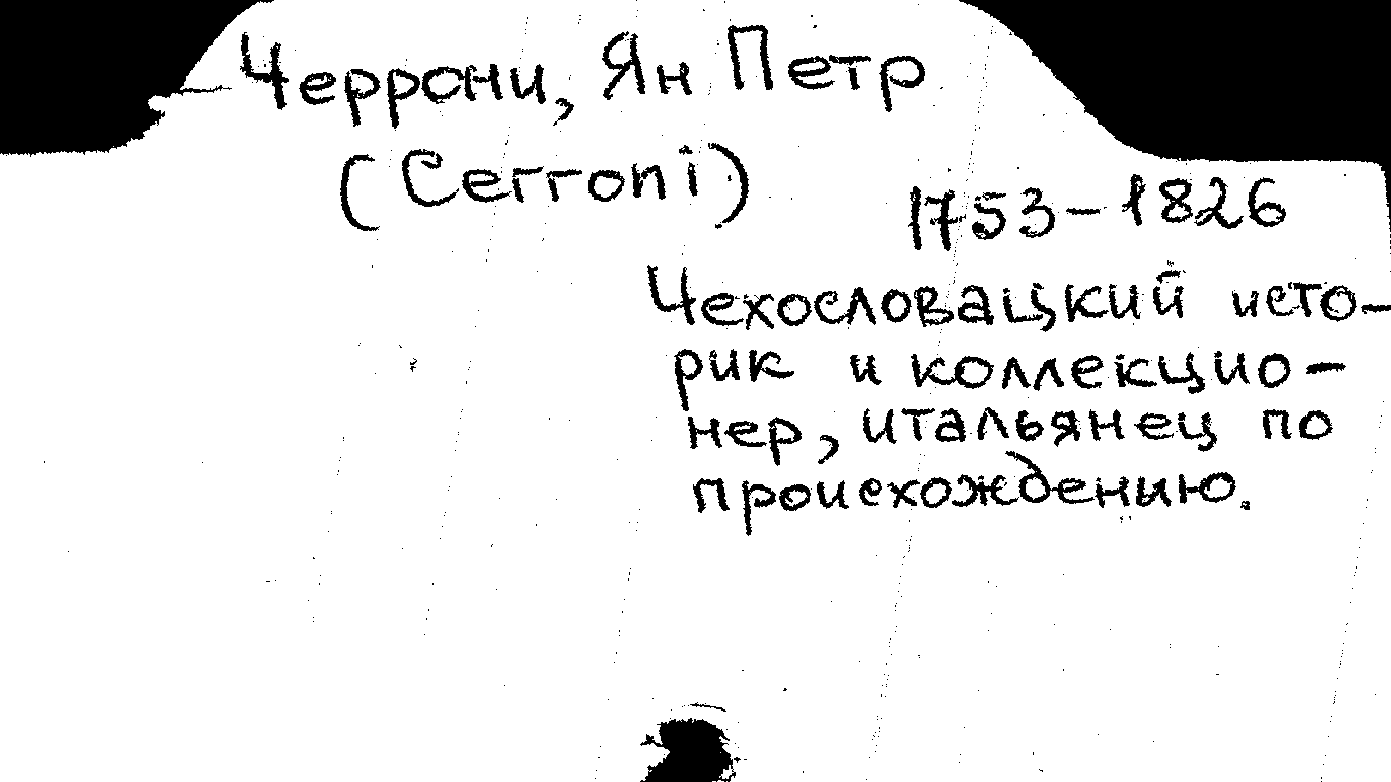 Черрони, Ян Петр
(Cerroni)
1753-1826
Чехословацкий исто-
рик и коллекцио-
нер, итальянец по
происхождению.